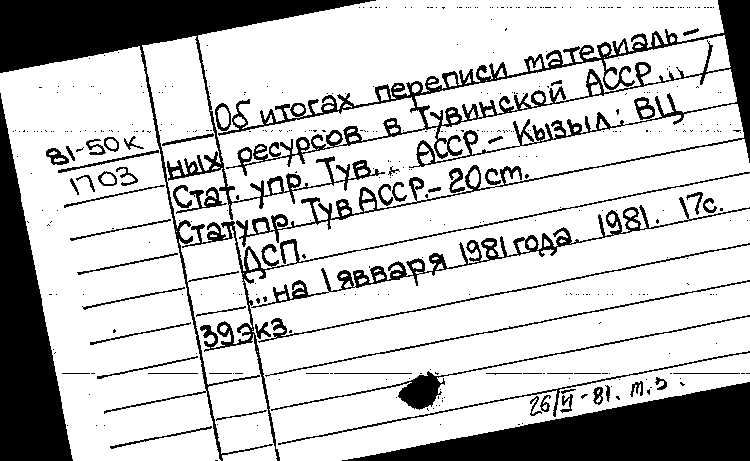 Об итогах переписи материаль-
ных ресурсов в Тувинской АССР... /
81-50к
1703
Стат. упр. Тув... АССР.- Кызыл: ВЦ
Статупр. Тув АССР.- 20 ст.
ДСП.
...на 1 явваря 1981 года. 1981. 17с.
39 экз.
26/VI-81. т.з.